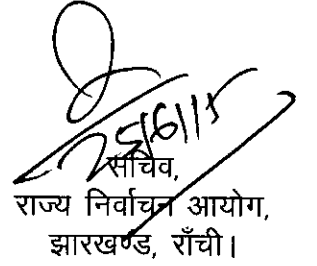 25/6/15
सचिव,
राज्य निर्वाचन आयोग,
झारखण्ड, राँची।